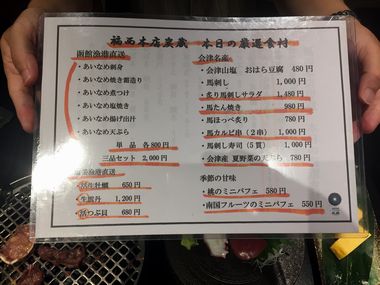 福西本店奥蔵 本日の厳選食材
函館漁港直送
・あいなめ刺身
・あいなめ焼き霜造り
・あいなめ煮つけ
・あいなめ塩焼き
・あいなめ揚げ出汁
・あいなめ天ぷら
単品 各800円
三品セット 2,000円
直送
・活生牡蠣 650円
・生雲丹 1,200円
・活つぶ貝 680円
会津名産
・会津山塩 おはら豆腐 480円
・馬刺し 1,000円
・炙り馬刺しサラダ 1,480円
・馬たん焼き 980円
・馬ほっぺ炙り 780円
・馬カルビ串(2串) 1,000円
・馬刺し寿司(5貫) 1,000円
・会津産 夏野菜の天ぷら 780円
季節の甘味
・桃のミニパフェ 580円
・南国フルーツのミニパフェ 550円